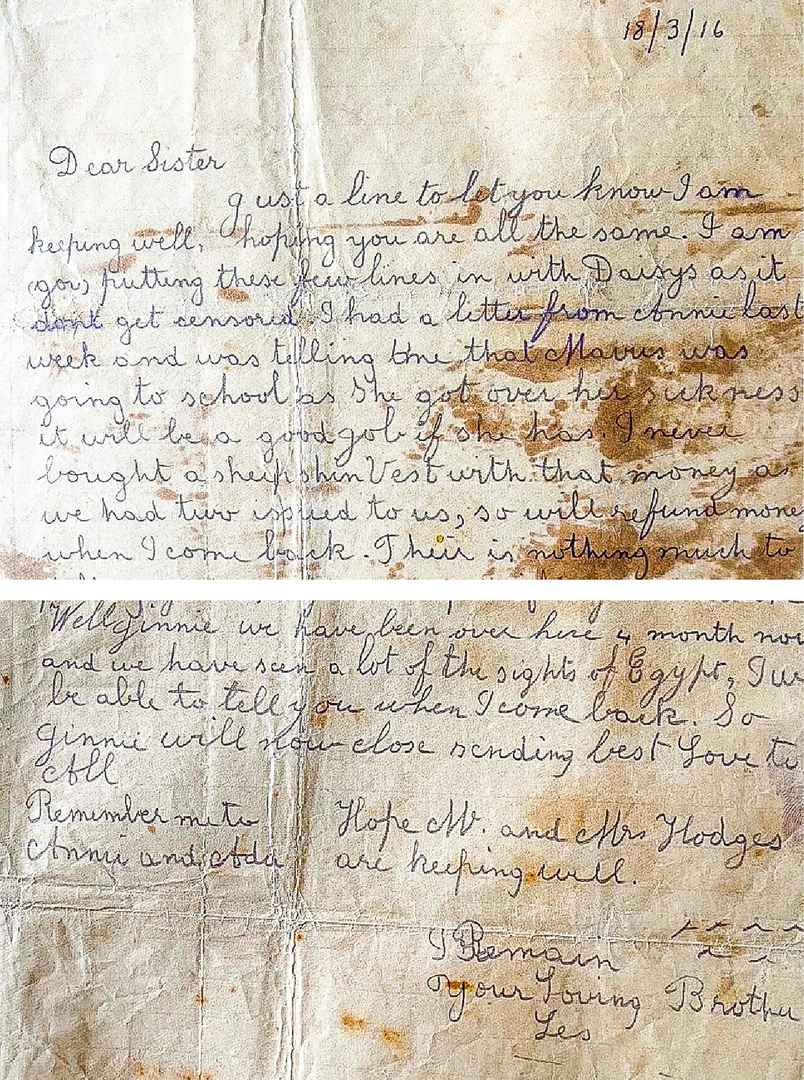 18/3/16
Dear Sister
Just a line to let you know I am
keeping well, hoping you are all the same. I am
putting these few lines in with Daisys as it
dont get censored. I had a letter from Annie last
week and was telling me that Mavis was
going to school as she got over her sickness
it will be a good job if she has. I never
bought a sheepskin Vest with that money as
we had two issued to us, so will refund money
when I come back. Their is nothing much to
Well Ginnie we have been over here 4 month now
and we have seen a lot of the sights of Egypt, I
be able to tell you when I come back. So
Ginnie will now close sending best Love to
All
Remember me to
Annie and Ada
Hope Mr. and Mrs Hodges
are keeping well.
I Remain
Your Loving Brother
Les